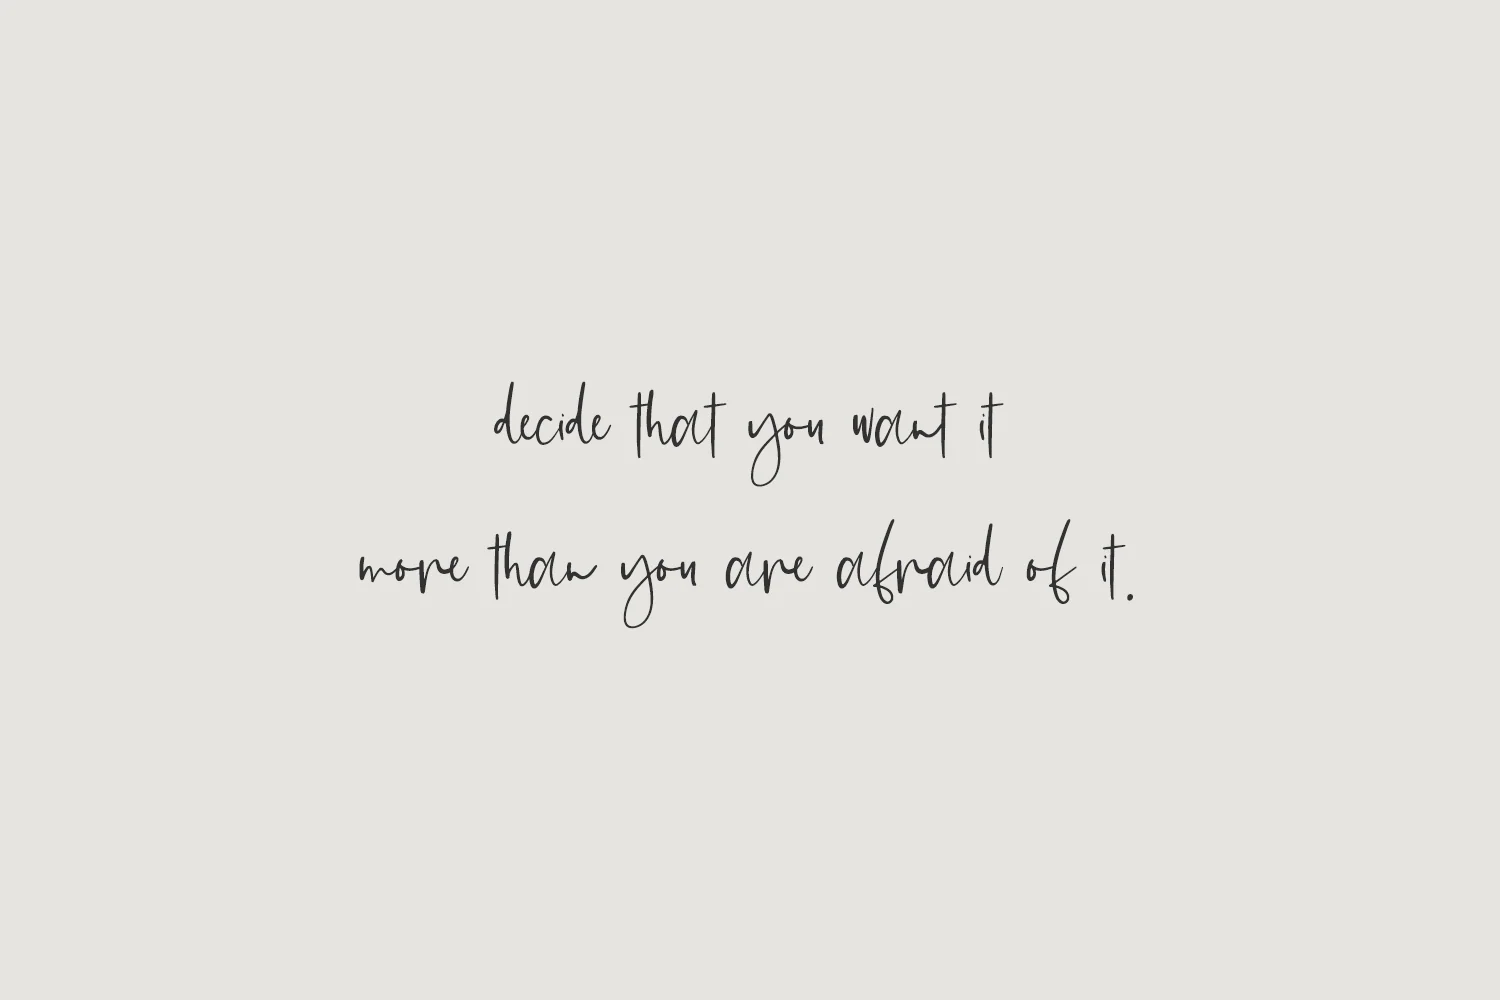 decide that you want it
more than you are afraid of it.